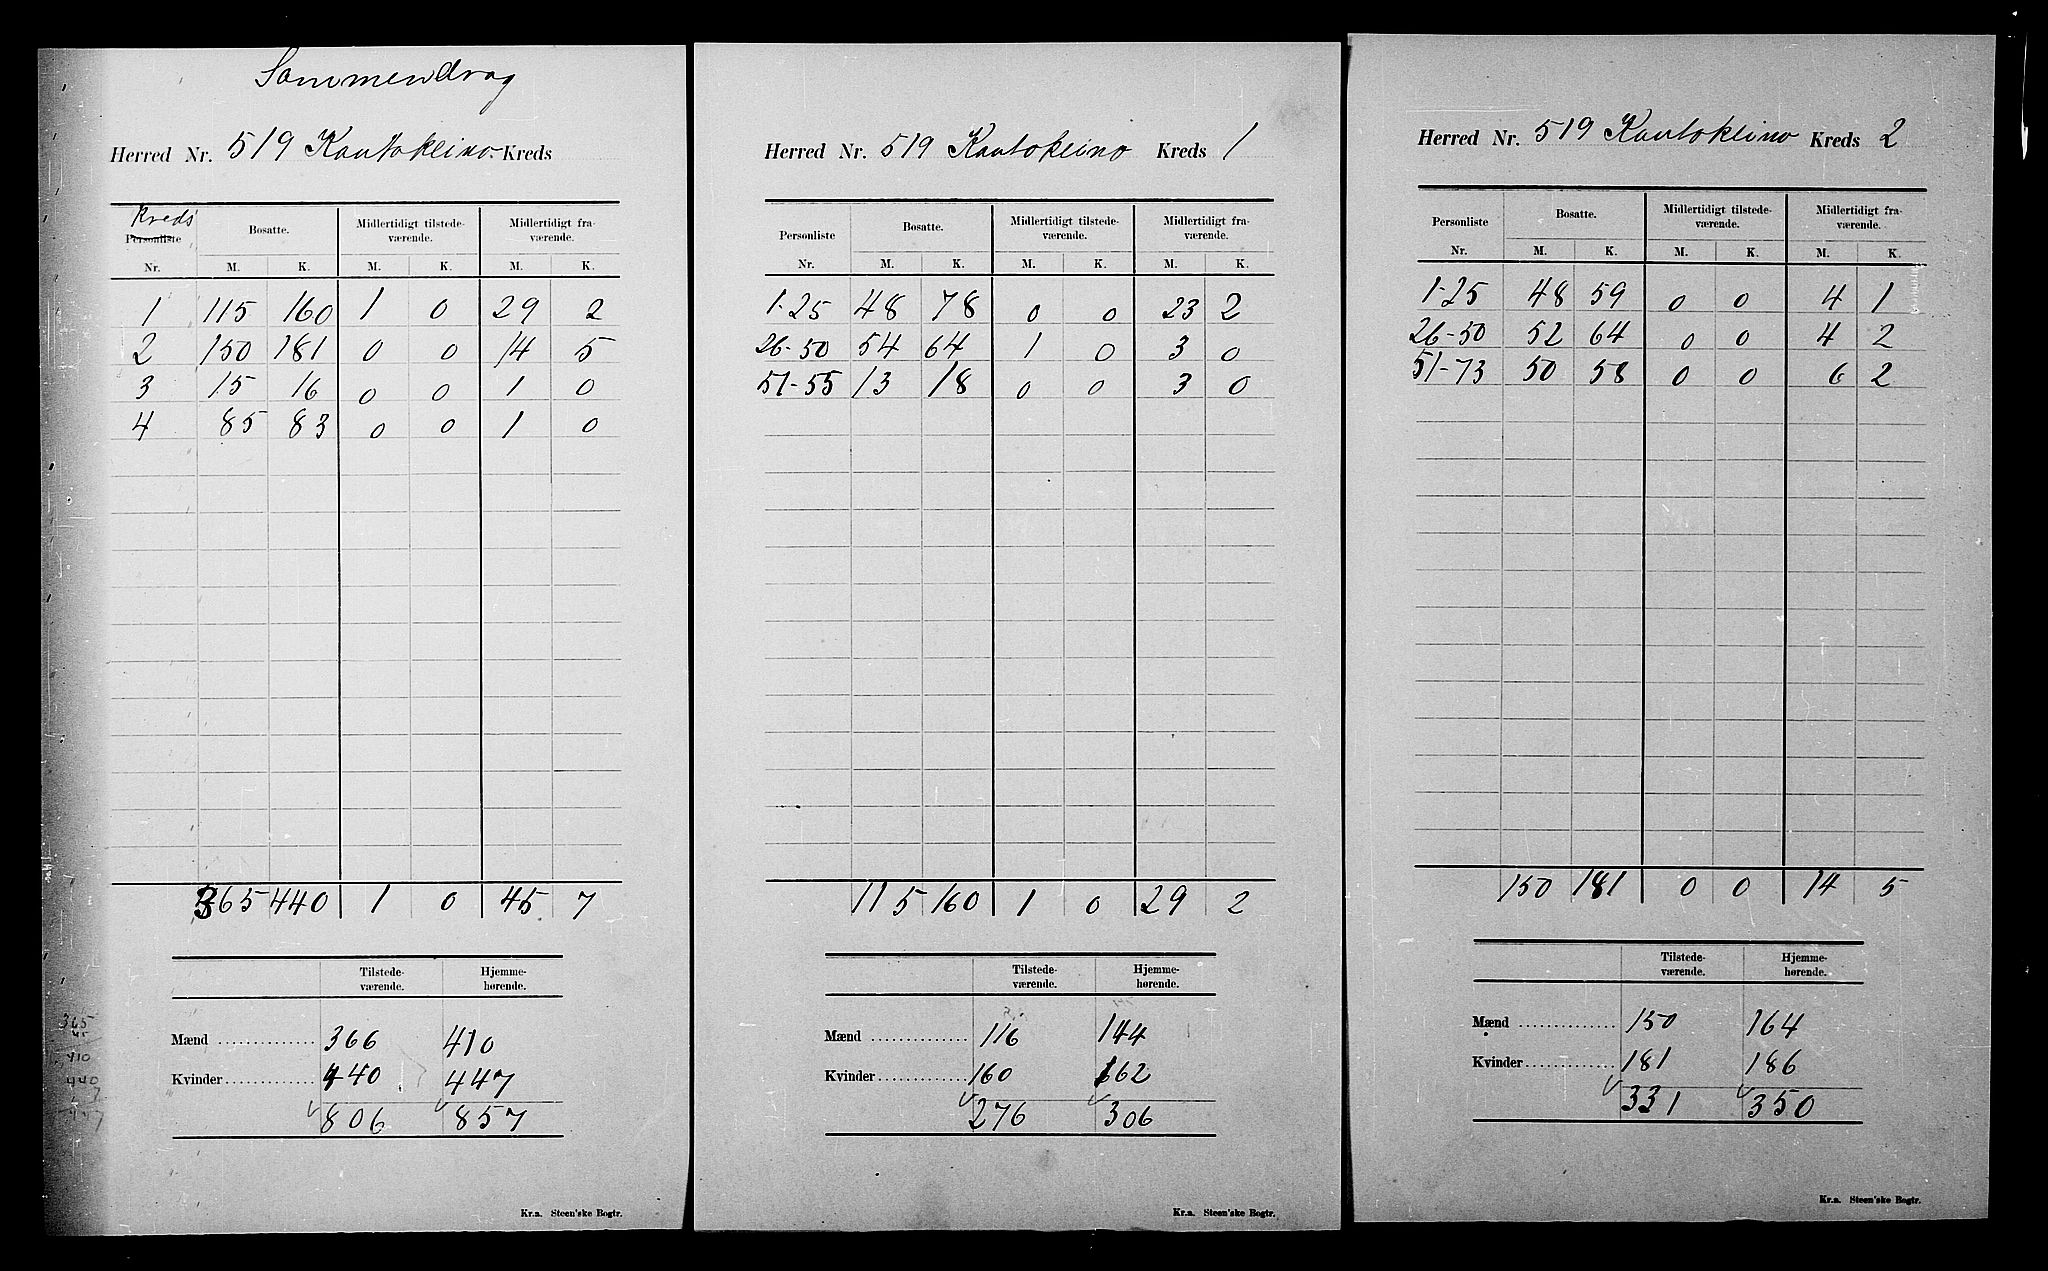 Sammendrag
Herred Nr. 519 Kautokeino. Kreds
Kreds
Personliste Bosatte. Midlertidigt tilstede- Midlertidigt fra-
værende. værende.
Nr. M. K. M. K. M. K.
1 115 160 1 0 29 2
2 150 181 0 0 14 5
3 15 16 0 0 1 0
4 85 83 0 0 1 0
365 440 1 0 45 7
Tilstede- Hjemme-
værende. hørende.
Mænd 366 410
Kvinder 440 447
806 857
365
45
410
440
7
447
Kr.a. Steen'ske Bogtr.
Herred Nr. 519 Kautokeino Kreds 1
Personliste Bosatte. Midlertidigt tilstede- Midlertidigt fra-
værende. værende.
Nr. M. K. M. K. M. K.
1-25 48 78 0 0 23 2
26-50 54 64 1 0 3 0
51-55 13 18 0 0 3 0
115 160 1 0 29 2
Tilstede- Hjemme-
værende. hørende.
Mænd 116 144
Kvinder 160 162
276 306
Kr.a. Steen'ske Bogtr.
Herred Nr. 519 Kautokeino Kreds 2
Personliste Bosatte. Midlertidigt tilstede- Midlertidigt fra-
værende. værende.
Nr. M. K. M. K. M. K.
1-25 48 59 0 0 4 1
26-50 52 64 0 0 4 2
51-73 50 58 0 0 6 2
150 181 0 0 14 5
Tilstede- Hjemme-
værende. hørende.
Mænd 150 164
Kvinder 181 186
331 350
Kr.a. Steen'ske Bogtr.